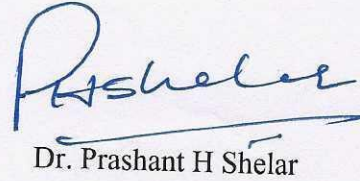 PHShelar
Dr. Prashant H Shelar